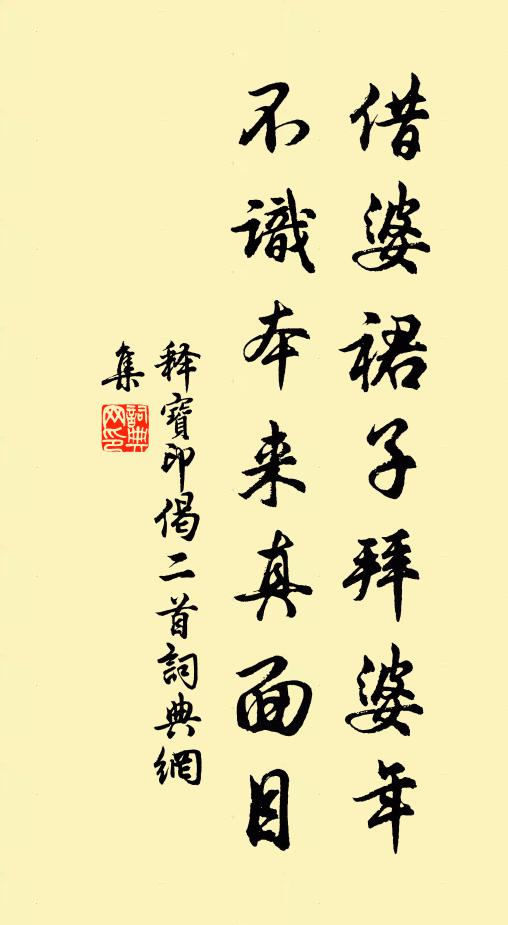 借婆裙子拜婆年
不識本来真面目
釋寶印偈二首詞典網
集
詞典网印